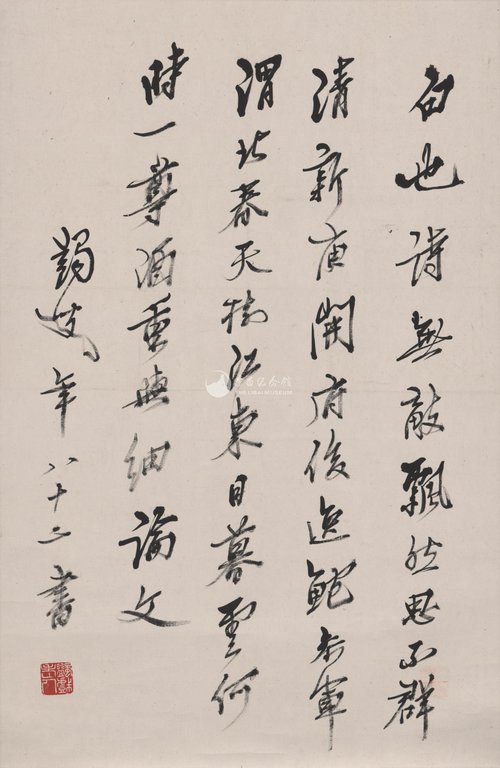 白也詩無敵飄然思不群
清新庾開府俊逸鮑參軍
渭北春天樹江東日暮雲何
時一尊酒重與細論文
蠲叟年八十二書
THE LIBAI MUSEUM